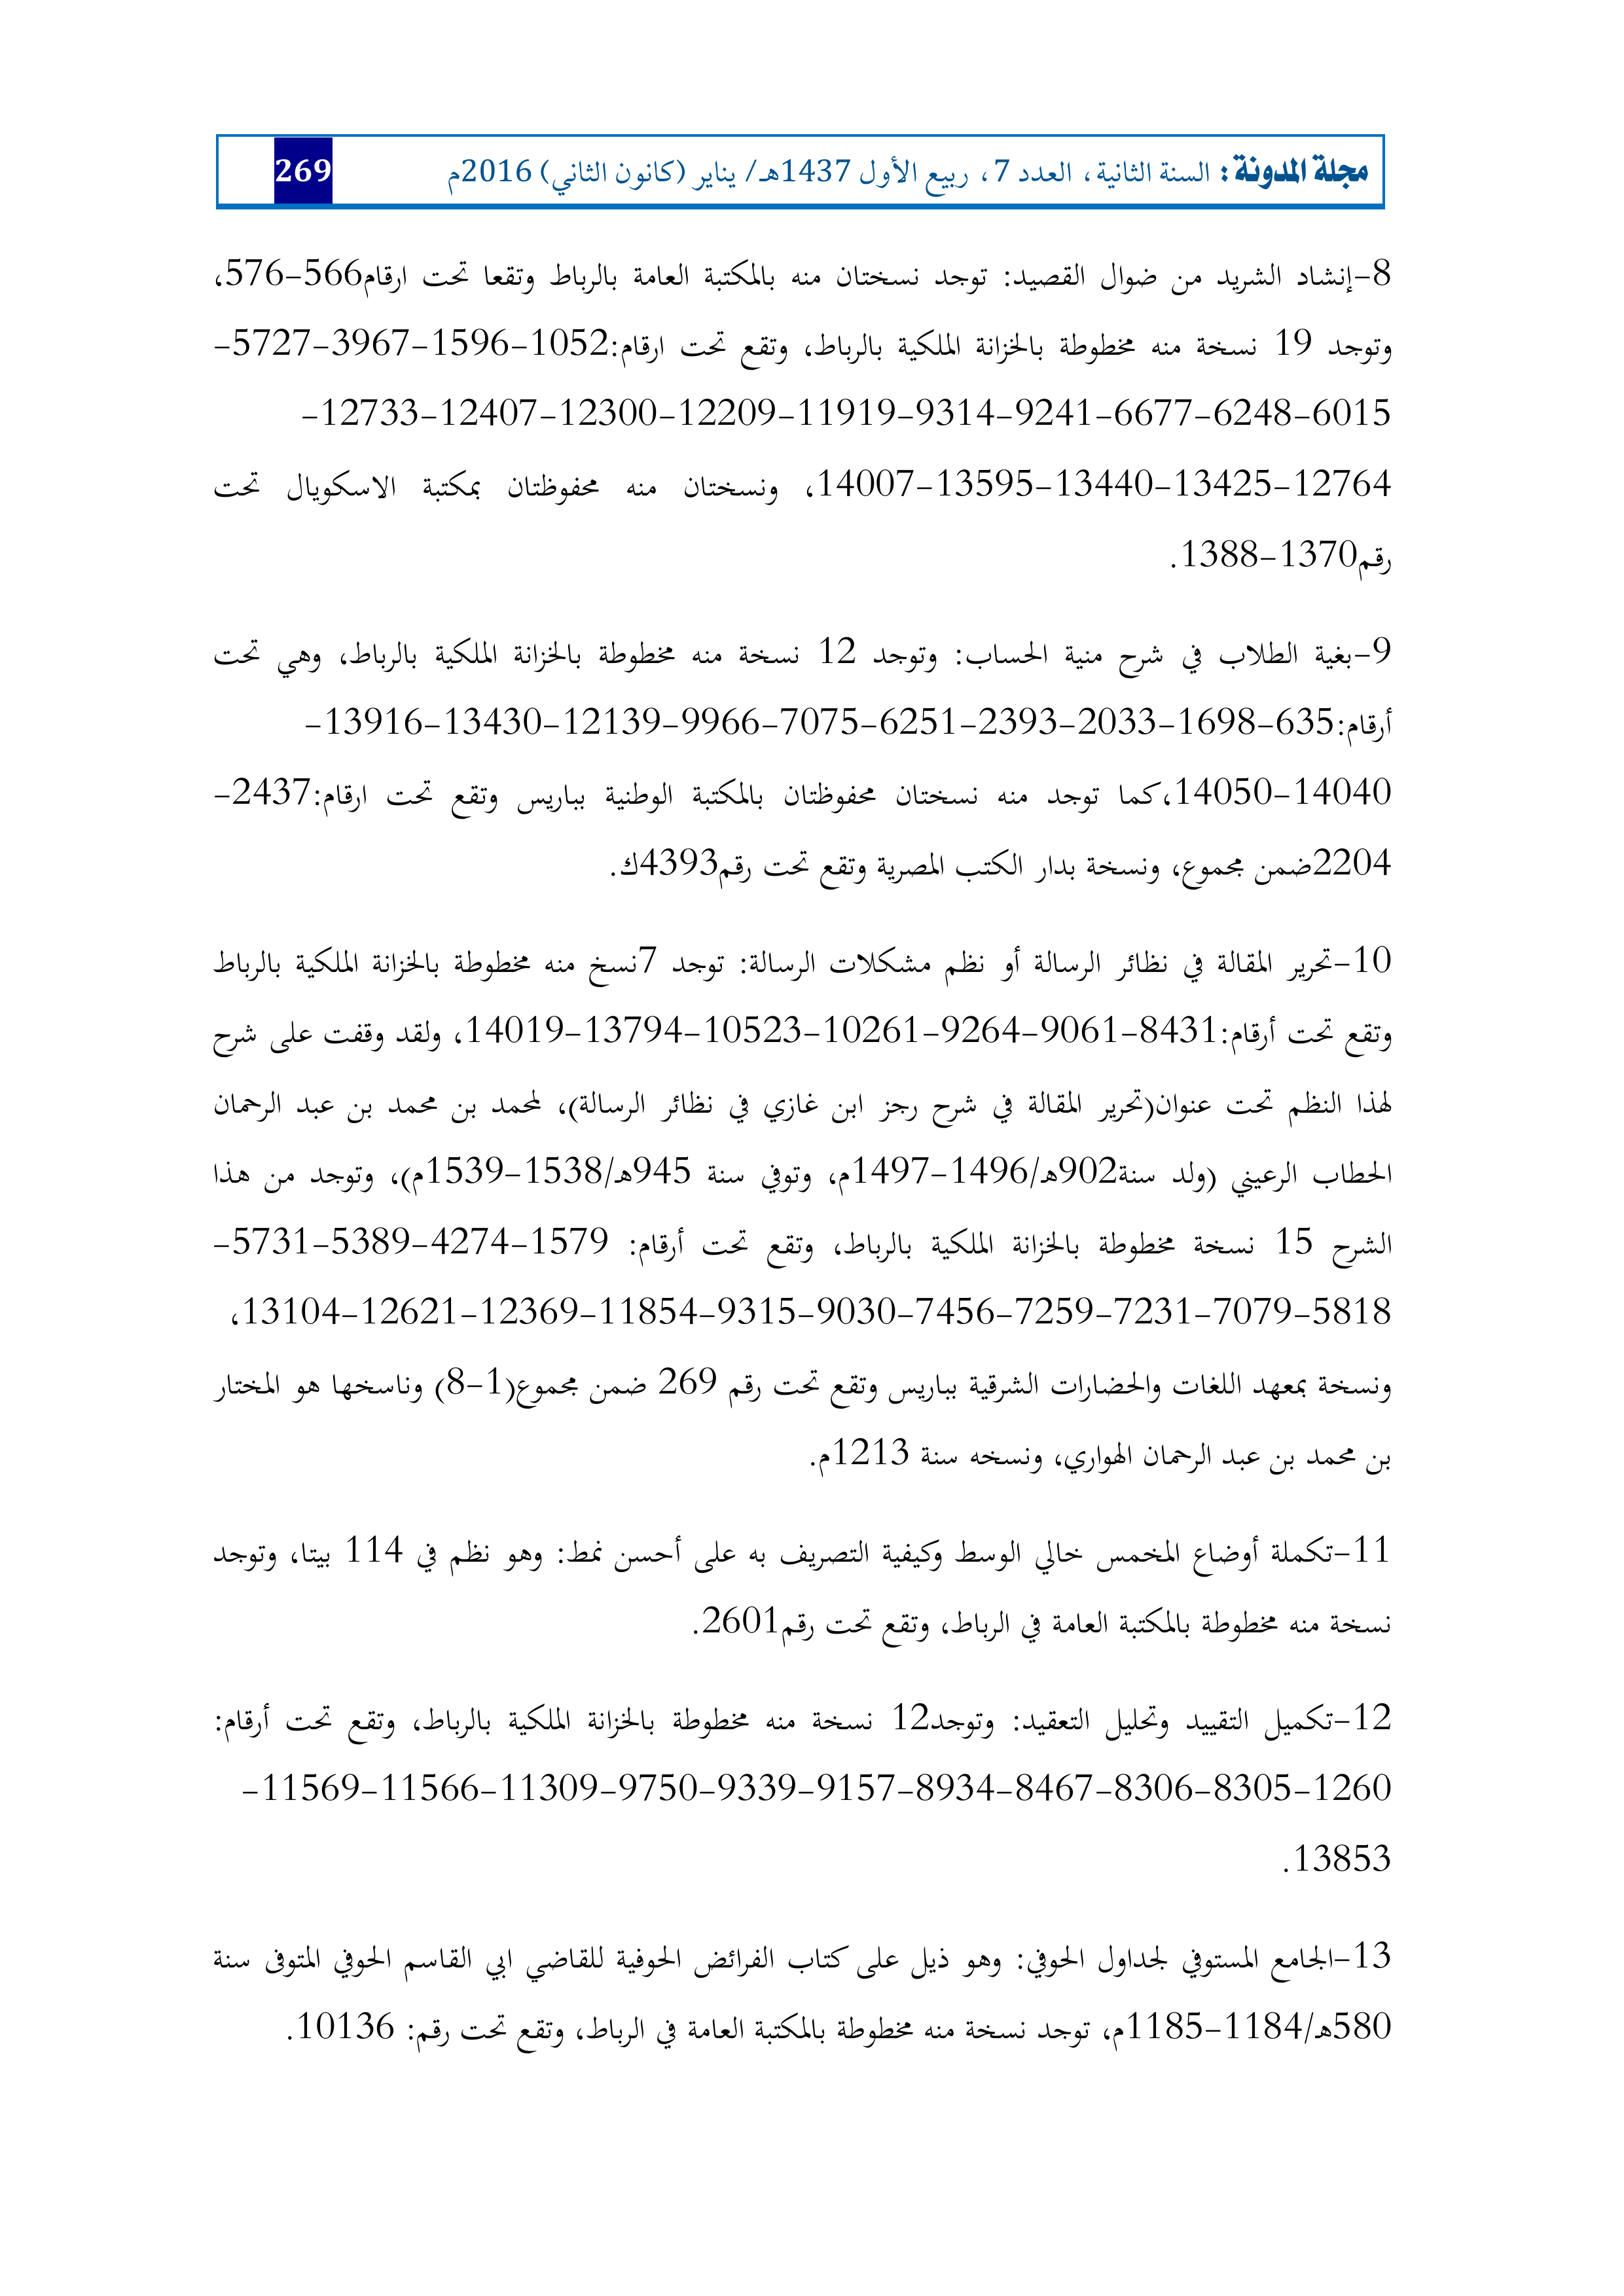 مجلة المدونة: السنة الثانية، العدد 7، ربيع الأول 1437هـ/ يناير (كانون الثاني) 2016م 269
8-إنشاد الشريد من ضوال القصيد: توجد نسختان منه بالمكتبة العامة بالرباط وتقعا تحت ارقام566-576،
وتوجد 19 نسخة منه مخطوطة بالخزانة الملكية بالرباط، وتقع تحت ارقام:1052-1596-3967-5727-
6015-6248-6677-9241-9314-11919-12209-12300-12407-12733-
12764-13425-13440-13595-14007، ونسختان منه محفوظتان بمكتبة الاسكويال تحت
رقم1370-1388.
9-بغية الطلاب في شرح منية الحساب: وتوجد 12 نسخة منه مخطوطة بالخزانة الملكية بالرباط، وهي تحت
أرقام:635-1698-2033-2393-6251-7075-9966-12139-13430-13916-
14040-14050،كما توجد منه نسختان محفوظتان بالمكتبة الوطنية بباريس وتقع تحت ارقام:2437-
2204ضمن مجموع، ونسخة بدار الكتب المصرية وتقع تحت رقم4393ك.
10-تحرير المقالة في نظائر الرسالة أو نظم مشكلات الرسالة: توجد 7نسخ منه مخطوطة بالخزانة الملكية بالرباط
وتقع تحت أرقام:8431-9061-9264-10261-10523-13794-14019، ولقد وقفت على شرح
لهذا النظم تحت عنوان(تحرير المقالة في شرح رجز ابن غازي في نظائر الرسالة)، لمحمد بن محمد بن عبد الرحمان
الحطاب الرعيني (ولد سنة902هـ/1496-1497م، وتوفي سنة 945هـ/1538-1539م)، وتوجد من هذا
الشرح 15 نسخة مخطوطة بالخزانة الملكية بالرباط، وتقع تحت أرقام: 1579-4274-5389-5731-
5818-7079-7231-7259-7456-9030-9315-11854-12369-12621-13104،
ونسخة بمعهد اللغات والحضارات الشرقية بباريس وتقع تحت رقم 269 ضمن مجموع(1-8) وناسخها هو المختار
بن محمد بن عبد الرحمان الهواري، ونسخه سنة 1213م.
11-تكملة أوضاع المخمس خالي الوسط وكيفية التصريف به على أحسن نمط: وهو نظم في 114 بيتا، وتوجد
نسخة منه مخطوطة بالمكتبة العامة في الرباط، وتقع تحت رقم2601.
12-تكميل التقييد وتحليل التعقيد: وتوجد12 نسخة منه مخطوطة بالخزانة الملكية بالرباط، وتقع تحت أرقام:
1260-8305-8306-8467-8934-9157-9339-9750-11309-11566-11569-
13853.
13-الجامع المستوفي لجداول الحوفي: وهو ذيل على كتاب الفرائض الحوفية للقاضي ابي القاسم الحوفي المتوفى سنة
580هـ/1184-1185م، توجد نسخة منه مخطوطة بالمكتبة العامة في الرباط، وتقع تحت رقم: 10136.